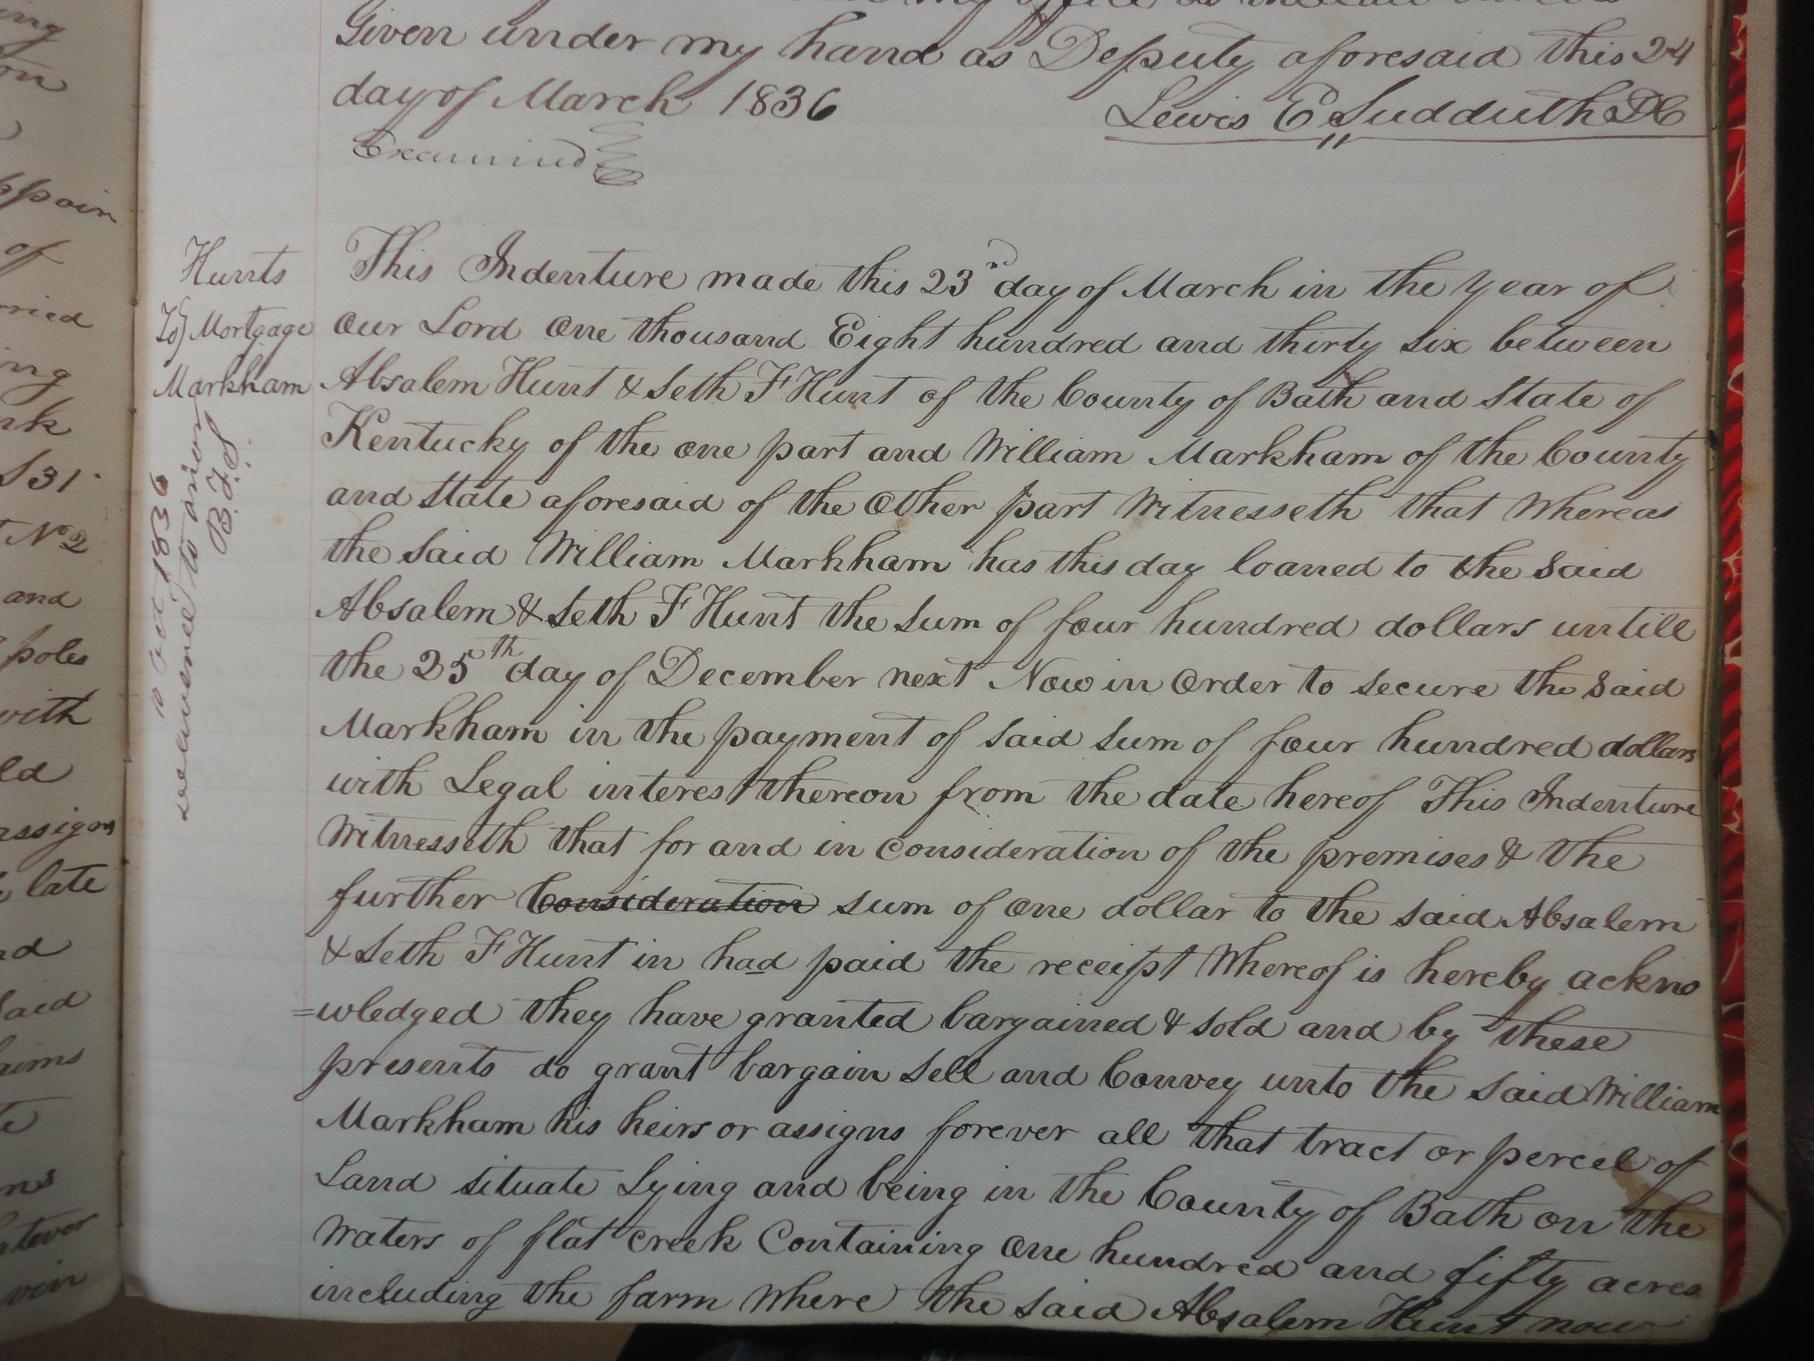 my office
Given under my hand as Deputy aforesaid this 24
day of March 1836
Lewis E Sudduth DC
Examined
Hunts
To } Mortgage
Markham
10 Oct 1836
to
B. F. S.
This Indenture made this 23rd day of March in the year of
our Lord One thousand Eight hundred and thirty six between
Absalem Hunt & Seth F Hunt of the County of Bath and State of
Kentucky of the one part and William Markham of the County
and State aforesaid of the Other part Witnesseth that Whereas
the said William Markham has this day loaned to the Said
Absalem & Seth F Hunt the Sum of four hundred dollars untill
the 25th day of December next Now in Order to secure the Said
Markham in the payment of said sum of four hundred dollars
with Legal interest thereon from the date hereof This Indenture
Witnesseth that for and in consideration of the premises & the
further Consideration sum of One dollar to the said Absalem
& Seth F Hunt in had paid the receipt Whereof is hereby ackno
=wledged they have granted bargained & sold and by these
presents do grant bargain Sell and Convey unto the Said William
Markham his heirs or assigns forever all that tract or percel of
Land situate Lying and being in the County of Bath on the
Waters of flat creek Containing One hundred and fifty acres
including the farm Where the said Absalem Hunt now
ing
on
ppair
of
rried
ing
rk
S31
No 2
and
poles
with
ld
assigns
late
nd
Said
aims
te
ns
atever